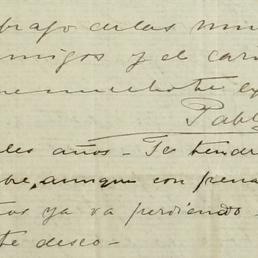 brazo de las niñ
migos y el cari
ue mucho te ex
Pabl
les años - Te tendr
bre, aunque con pena
tos ya va perdiendo
te deseo -